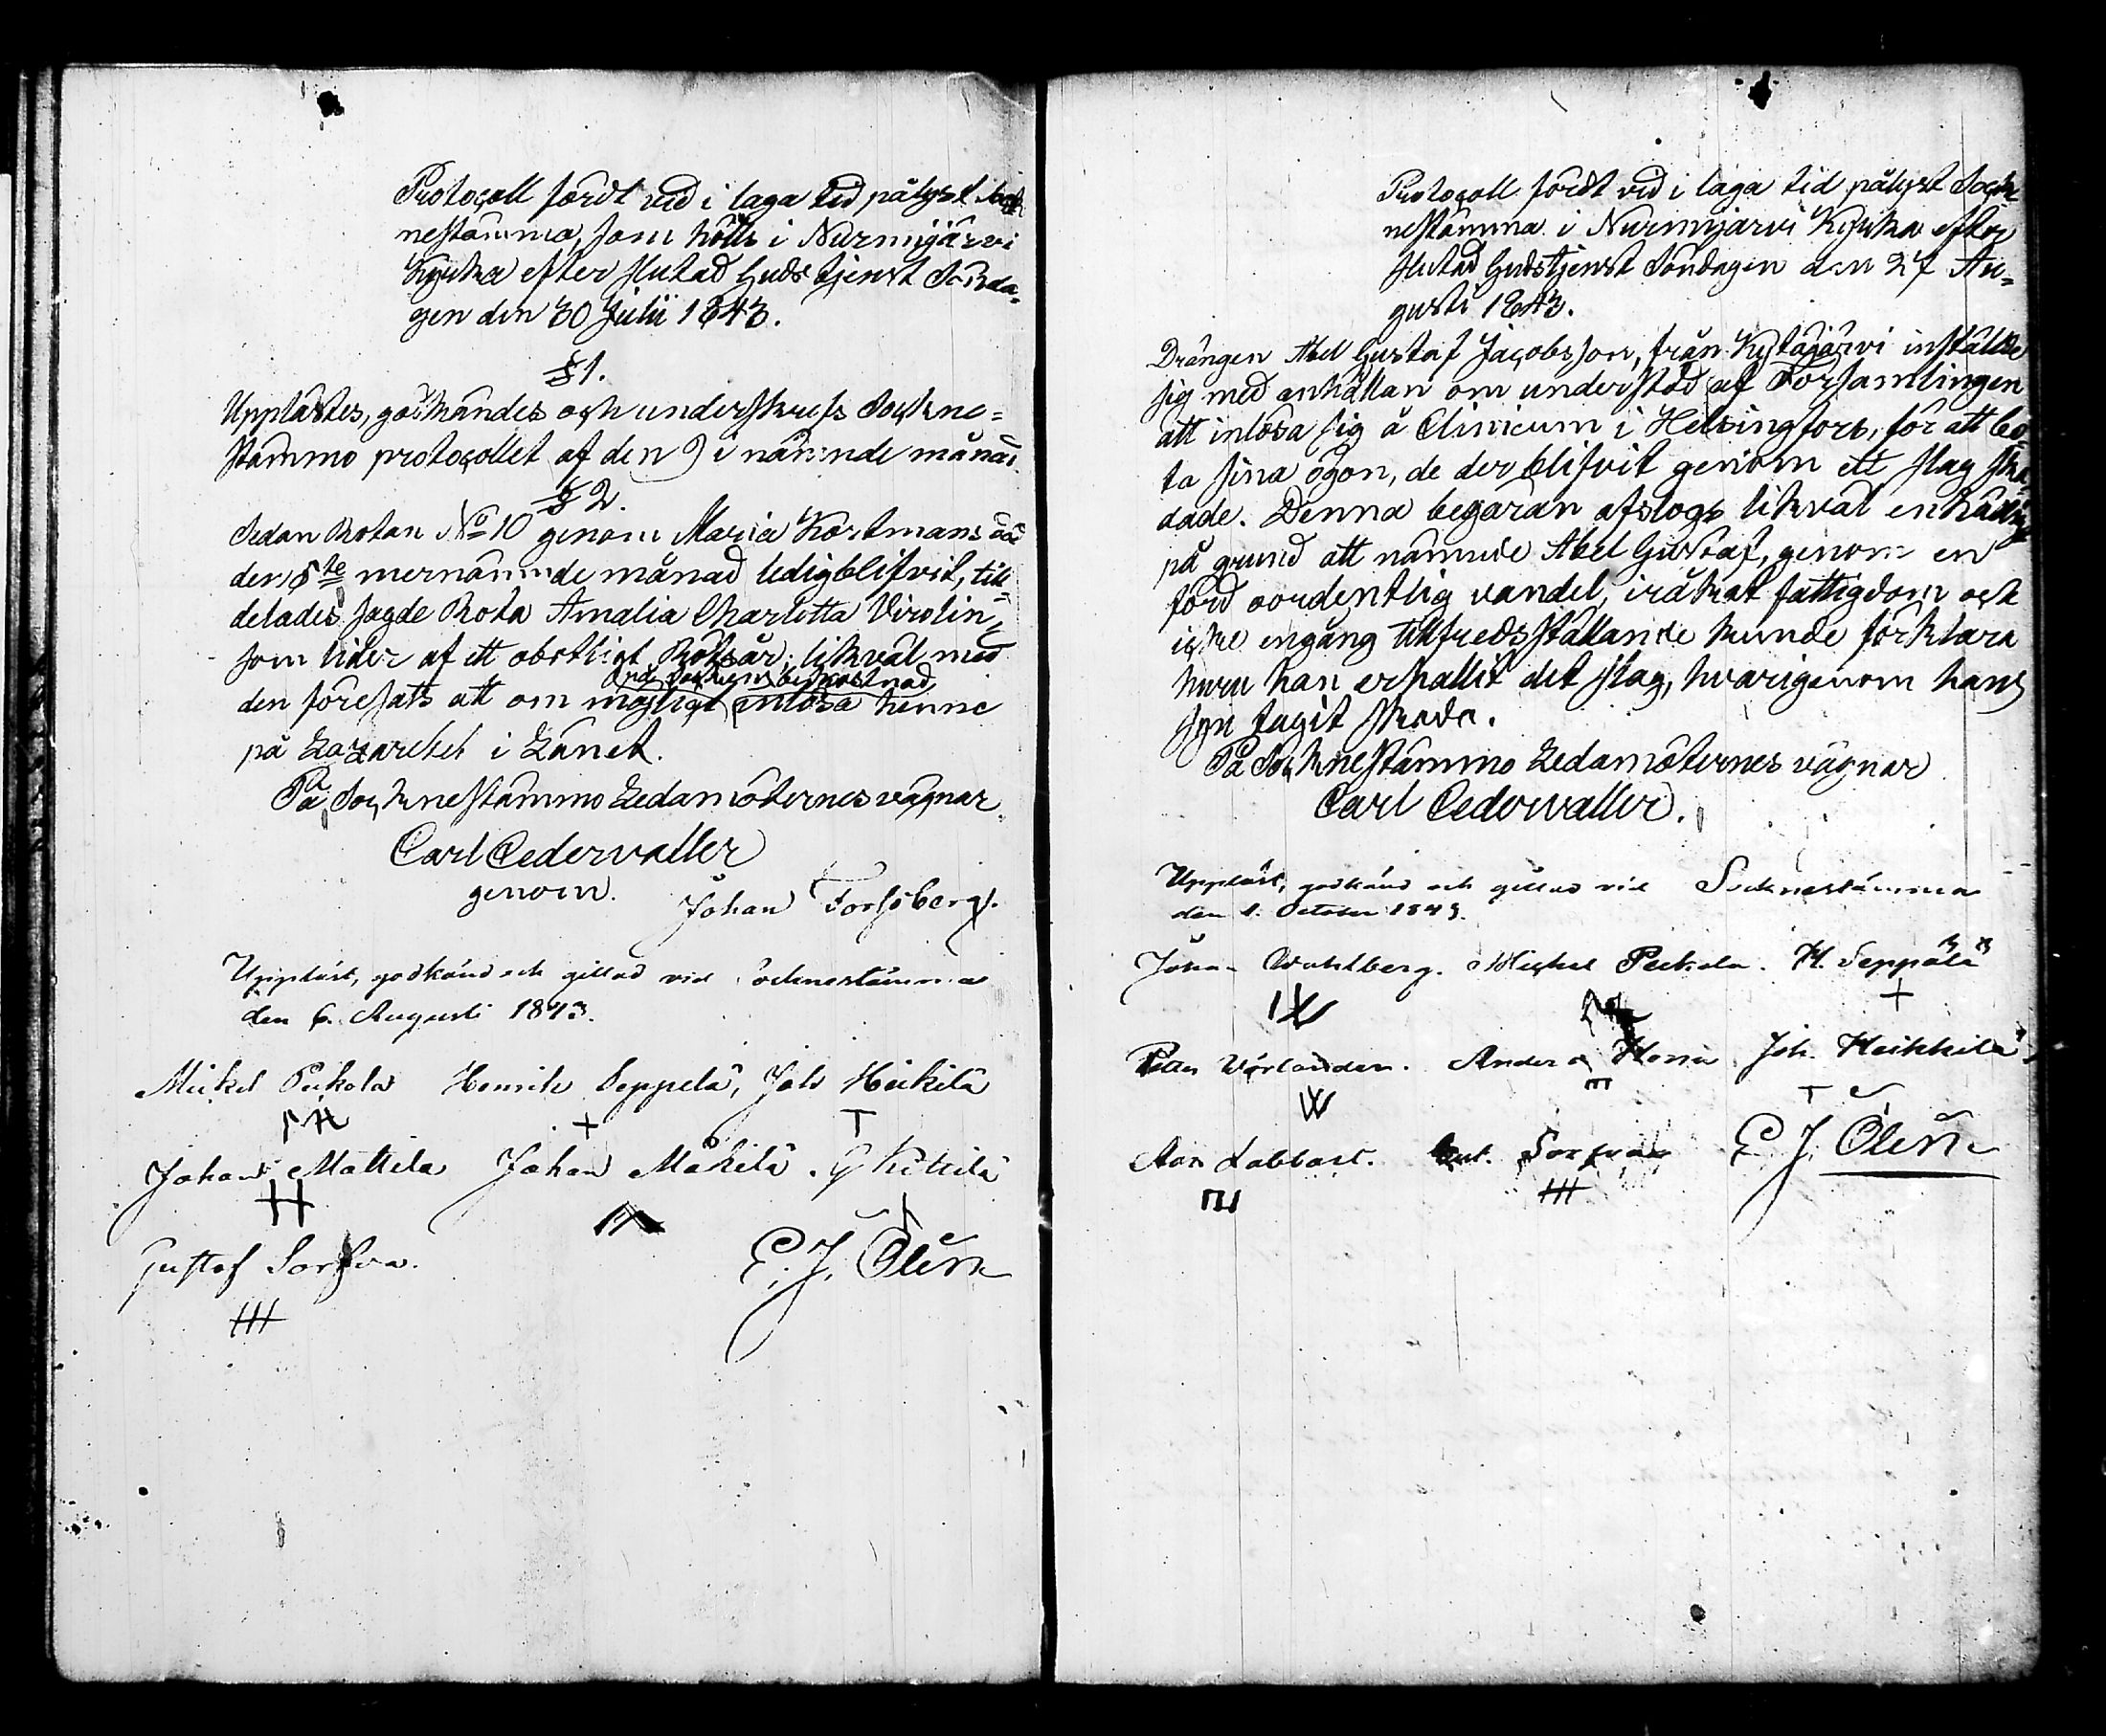 Protocoll fördt vid i laga tid pålyst Sock
nestämma, som hölls i Nurmijärvi
Kyrka efter slutad Gudstjenst Sönda-
gen den 30 Julii 1843.
§ 1.
Upplästes, godkändes och underskrefs Sockne=
stämmo protocollet af den 9 i nämnde månad.
§ 2.
Sedan Rotan No 10 genom Maria Kortmans död
den 5te mernämnde månad ledigblifvit, till-
delades sagde Rota Amalia Charlotta Virolin,
som lider af ett obotligt Rötsår, likväl med
den föresats att om möjligt på Sockens bekostnad inlösa henne
på Lazarettet i Länet.
På Socknestämmo Ledamöternes vägnar
Carl Cedervaller
genom.
Johan Forssberg.
Uppläst, godkänd och gillad vid Socknestämma
den 6. Augusti 1843.
Mickel Pekola Henrik Seppelä, Joh Heikkilä
Johan Mattila Johan Mäkilä. G Kittilä
Gustaf Sorfva. E. J. Ölén
Protocoll fördt vid i laga tid pålyst Sock
nestämma i Nurmijärvi Kyrka efter
slutad Gudstjenst Söndagen den 27 Au=
gusti 1843.
Drängen Abel Gustaf Jacobsson, från Kytäjärvi inställde
sig med anhållan om understöd af Församlingen
att inlösa sig å Clinicum i Helsingfors, för att bo-
ta sina ögon, de der blifvit genom ett slag ska-
dade. Denna begäran afslogs likväl enhällig
på grund att nämnde Abel Gustaf, genom en
förd oordentlig vandel, iråkat fattigdom och
icke engång tillfredsställande kunde förklara
huru han erhallit det slag, hvarigenom hans
syn tagit skada.
På Socknestämmo Ledamöternes vägnar
Carl Cedervaller.
Uppläst, godkänd och gillad vid Socknestämma
den 1. October 1843.
Johan Wahlberg. Mickel Peckola. H. Seppälä
Anders Joh. Heikkilä
E J. Ölén